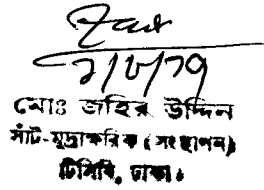 মোঃ জহির উদ্দিন
সাঁট-মুদ্রাক্ষরিক (সংস্থাপন)
টিসিবি, ঢাকা।